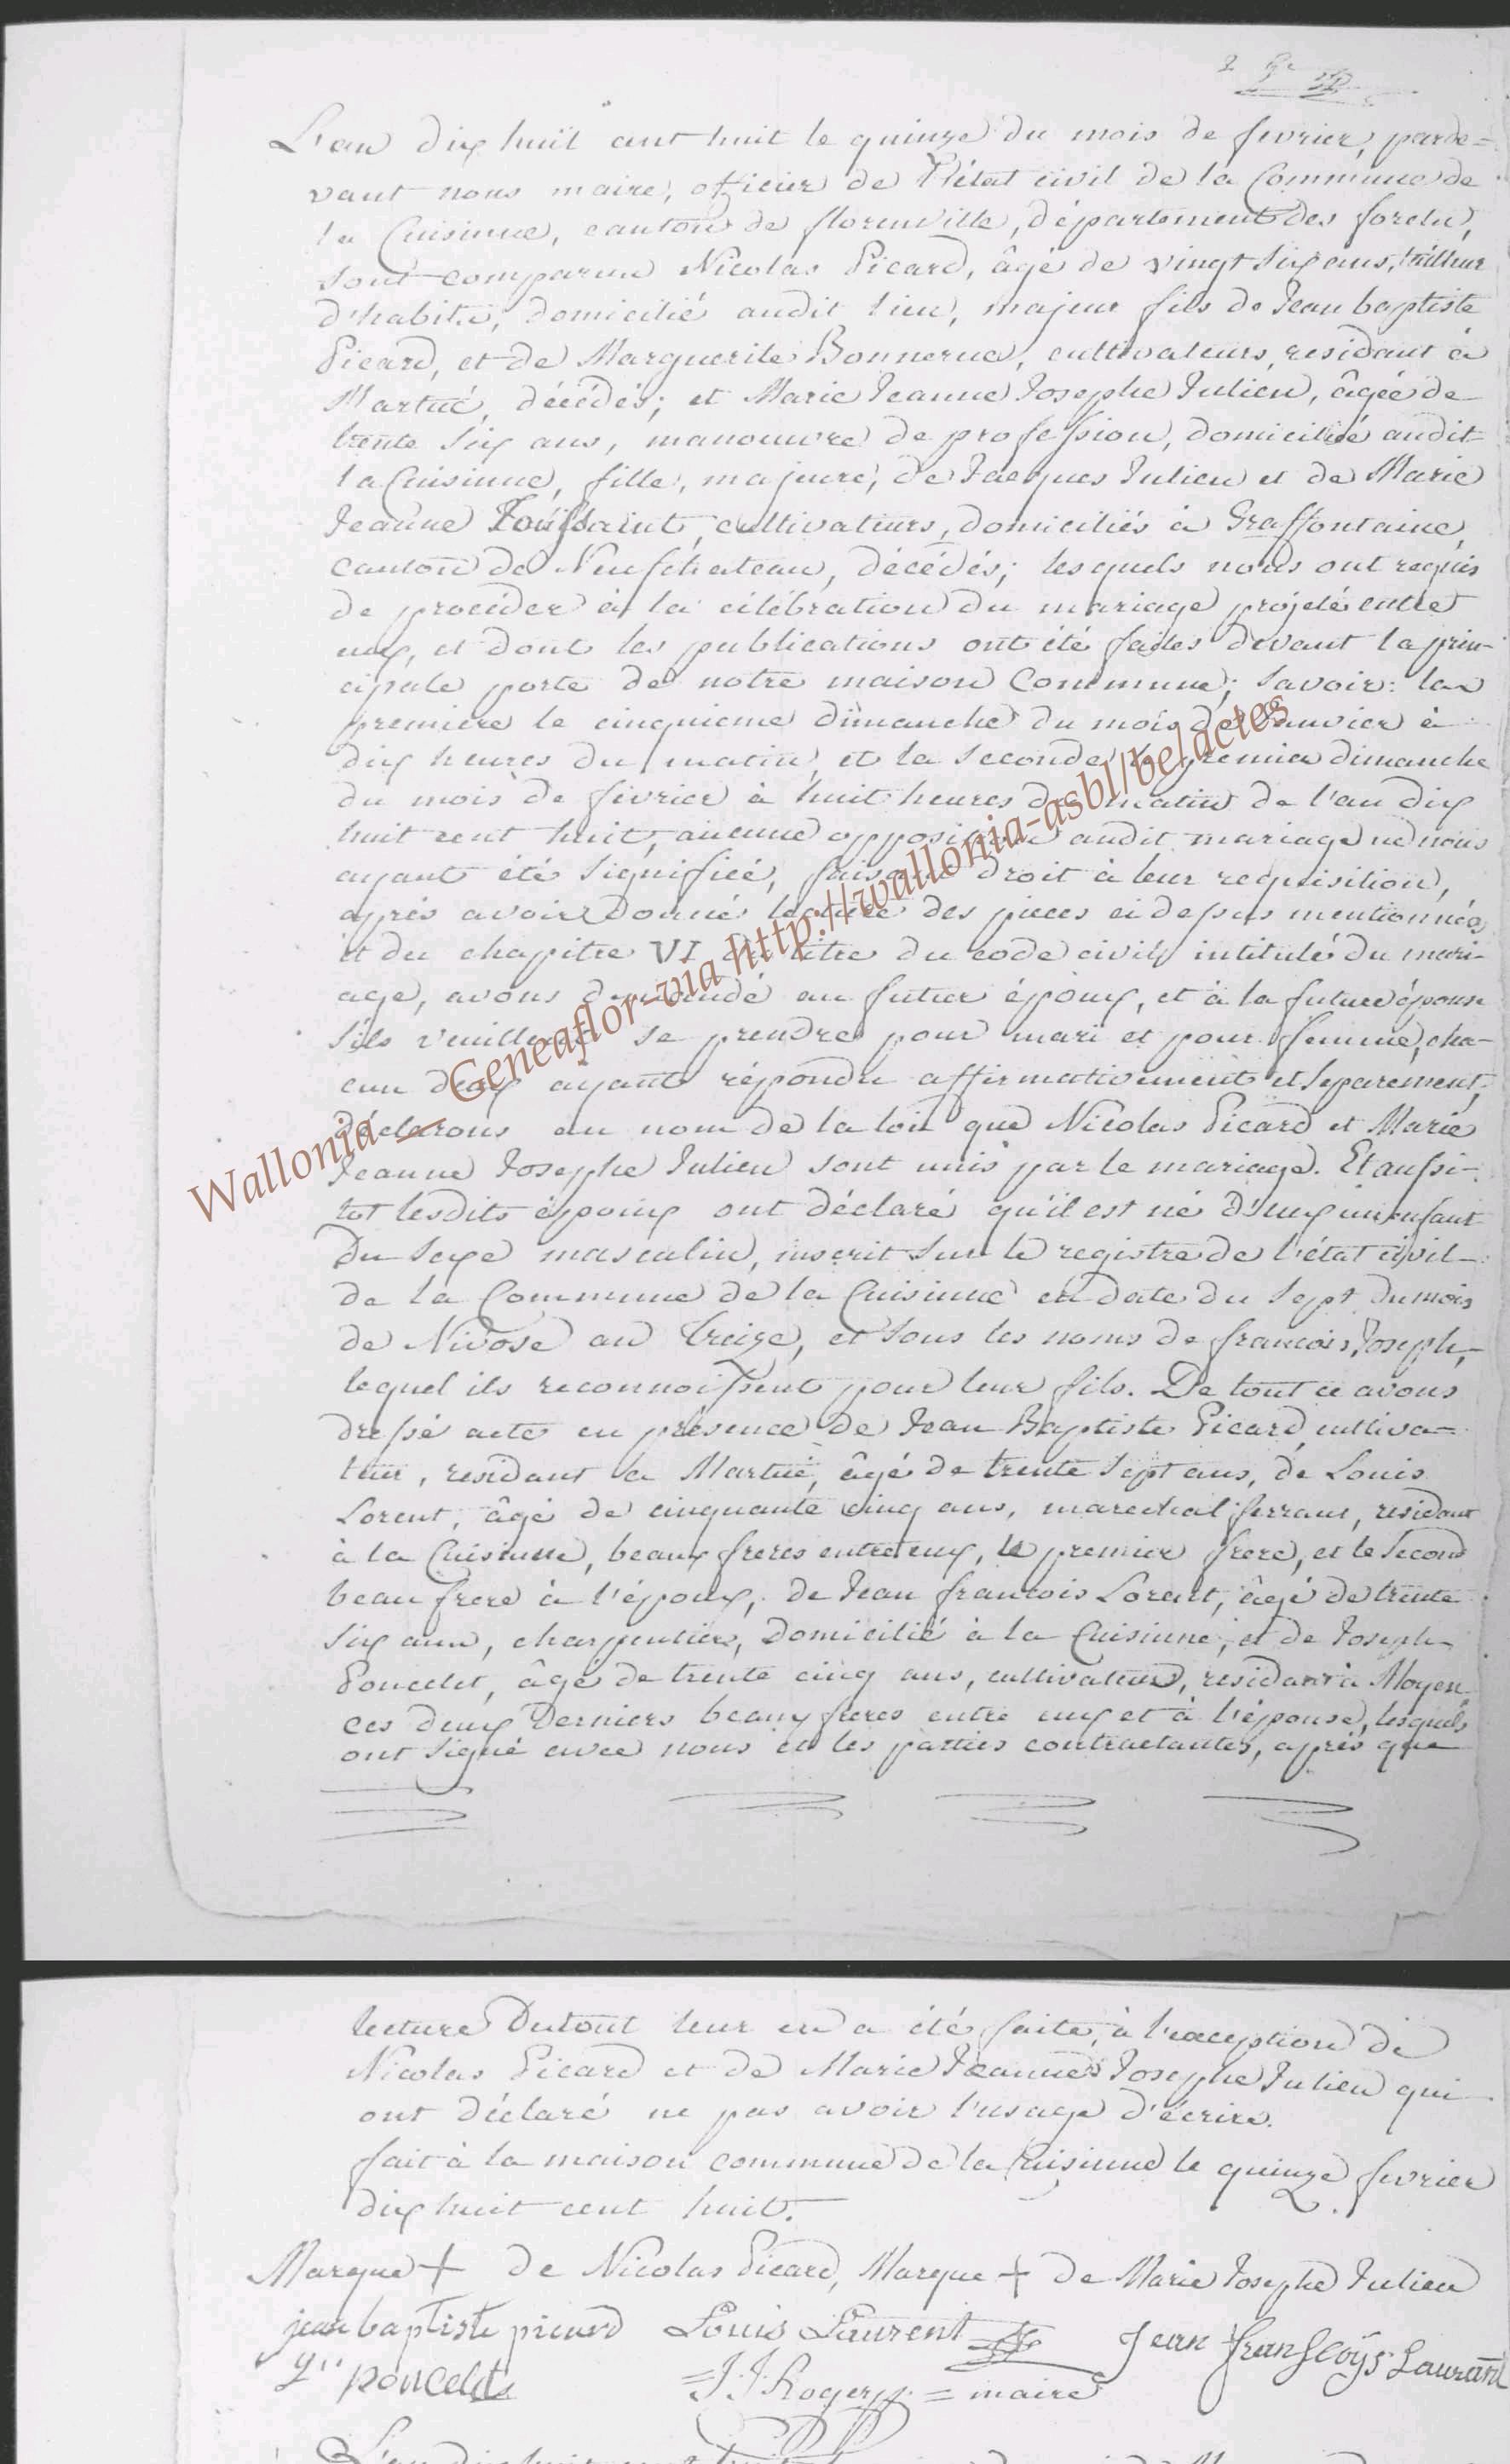 L'an dix huit cent huit le quinze du mois de fevrier, parde=
vant nous maire, officier de l'état civil de la Commune de
la Cuisinne, canton de florenville, département des forets,
sont comparus Nicolas Picard, âgé de vingt six ans, tailleur
d'habits, domicilié audit lieu, majeur fils de Jean baptiste
Picard, et de Marguerite Bonnerue, cultivateurs, residant à
Martué, décédés; et Marie Jeanne Josephe Julien, âgée de
trente six ans, manouvre de profession, domiciliée audit
la Cuisinne, fille, majeure, de Jacques Julien et de Marie
Jeanne Toussaint, cultivateurs, domiciliés à Graffontaine,
canton de Neufchateau, décédés; lesquels nous ont requis
de procéder à la célébration du mariage projeté entre
eux, et dont les publications ont été faites devant la prin-
cipale porte de notre maison Commune; savoir: la
premiere le cinquieme dimanche du mois de Janvier à
dix heures du matin, et la seconde le premier dimanche
du mois de fevrier à huit heures du matin de l'an dix
huit cent huit, aucune opposition audit mariage ne nous
ayant été signifiée, faisant droit à leur requisition,
après avoir donné lecture des pieces ci dessus mentionnées
et du chapitre VI du titre du code civil intitulé du mari-
age, avons demandé au futur époux, et à la future épouse
s'ils veuillent se prendre pour mari et pour femme, cha-
cun deux ayant répondu affirmativement et separement,
déclarons au nom de la loi que Nicolas Picard et Marie
Jeanne Josephe Julien sont unis par le mariage. Et aussi-
tot lesdits époux ont déclaré qu'il est né d'eux un enfant
du sexe masculin, inscrit sur le registre de l'état civil
de la Commune de la Cuisinne en date du sept du mois
de Nivose an treize, et sous les noms de francois Joseph,
lequel ils reconnoissent pour leur fils. De tout ce avons
dressé acte en présence de Jean Baptiste Picard, cultiva=
teur, residant a Martué, âgé de trente sept ans, de Louis
Lorent, âgé de cinquante cinq ans, marechal ferrant, residant
à la Cuisinne, beaux freres entre eux, le premier frere, et le second
beau frere à l'époux, de Jean francois Lorent, âgé de trente
six ans, charpentier, domicilié à la Cuisinne, et de Joseph
Poncelet, âgé de trente cinq ans, cultivateur, residant à Moyen
ces deux derniers beaux freres entre eux et à l'épouse, lesquels
ont signé avec nous et les parties contractantes, après que
Wallonia – Geneaflor-via http://wallonia-asbl/belactes
lecture du tout leur en a été faite, à l'exception de
Nicolas Picard et de Marie Jeanne Josephe Julien qui
ont déclaré ne pas avoir l'usage d'écrire.
fait à la maison commune de la Cuisinne le quinze fevrier
dix huit cent huit.
Marque + de Nicolas Picard, Marque + de Marie Josephe Julien
jean baptiste picard Louis Laurent Jean franscoys Laurant
poncelet =J.J. Rogery= maire